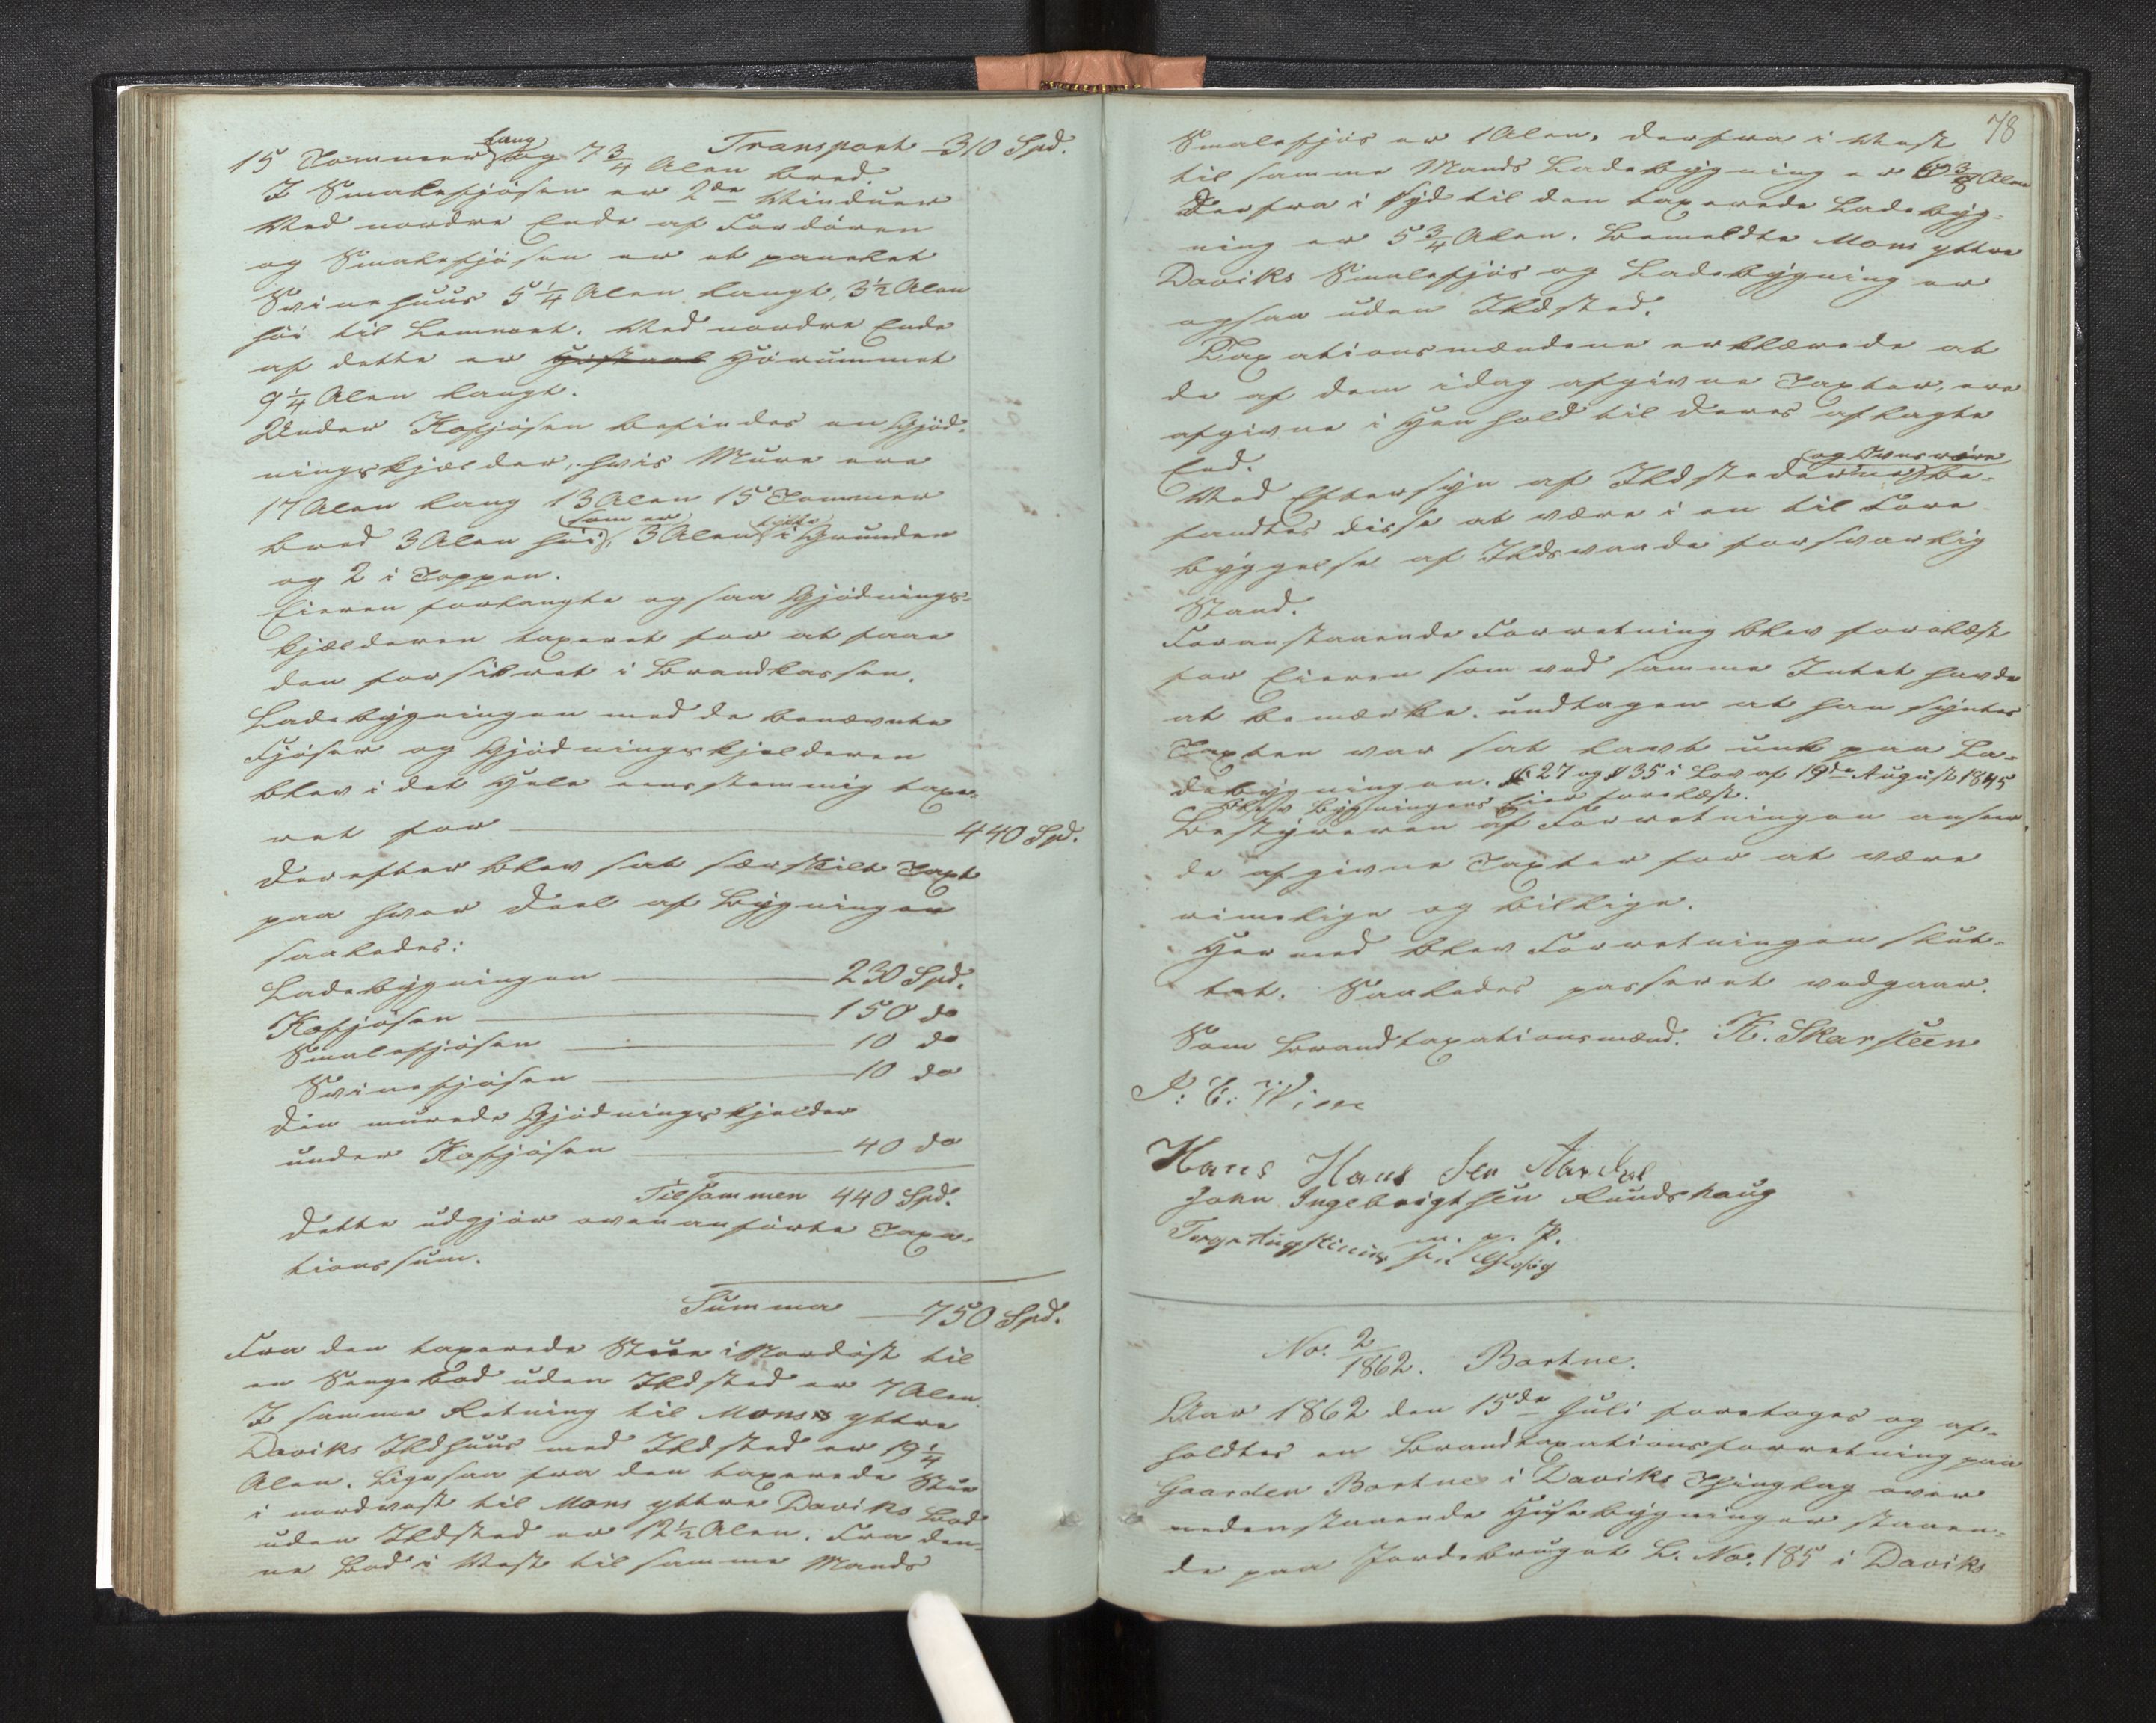 Transport 310 Spd.
15 Tommer lang og 7 3/4 Alen bred.
I Smalefjøsen er 2de Vinduer
Ved nordre Ende af Fordøren
og Smalefjøsen er et panelet
Svinehuus 5 1/4 Alen langt, 3 1/2 Alen
høi til Lemmet. Ved nordre Ende
af dette er Hørummet
9 1/4 Alen langt.
Under Kofjøsen befindes en Gjød-
ningskjælder, hvis Mure ere
17 Alen lang 13 Alen 15 Tommer
bred 3 Alen høi, som er 3 Alen tykke i Grunden
og 2 i Toppen.
Eieren forlangte ogsaa Gjødnings-
kjælderen taxeret for at faae
den forsikret i Brandkassen.
Ladebygningen med de benævnte
Fjøser og Gjødningskjelderen
blev i det Hele eenstemmig taxe-
ret for 440 Spd.
Derefter blev sat særskilt Taxt
paa hver Deel af Bygningen
saaledes:
Ladebygningen 230 Spd.
Kofjøsen 150 do
Smalefjøsen 10 do
Svinefjøsen 10 do
Den murede Gjødningskjelder
under Kofjøsen 40 do
Tilsammen 440 Spd.
Dette udgjør ovenanførte Taxa-
tionssum.
Summa 750 Spd.
Fra den taxerede Stue i Nordøst til
en Sengebod uden Ildsted er 7 Alen.
I samme Retning til Mons yttre
Daviks Ildhuus med Ildsted er 19 1/4
Alen. Ligesaa fra den taxerede Stue
i nordvest til Mons yttre Daviks Bod
uden Ildsted er 12 1/2 Alen. Fra den-
ne Bod i Vest til samme Mands
78
Smalefjøs er 1 Alen, derfra i Vest
til samme Mands Ladebygning er 6 3/8 Alen
Derfra i Syd til den taxerede Ladebyg-
ning er 5 3/4 Alen. Bemeldte Mons yttre
Daviks Smalefjøs og Ladebygning er
ogsaa uden Ildsted.
Taxationsmændene erklærede at
de af dem idag afgivne Taxter, ere
afgivne i Henhold til deres aflagte
Eed.
Ved Eftersyn af Ildstederne og Ovnsrøre be-
fandtes disse at være i en til Fore-
byggelse af Ildsvaade forsvarlig
Stand.
Foranstaaende Forretning blev forelæst
for Eieren som ved samme Intet havde
at bemærke, undtagen at han syntes
Taxten var sat lavt nok paa La-
debygningen. § 27 og § 35 i Lov af 19de August 1845
blev Bygningens Eier forelæst.
Bestyreren af Forretningen anseer
de afgivne Taxter for at være
rimelige og billige.
Hermed blev Forretningen slut-
tet. Saaledes passeret vedgaar.
Som Brandtaxationsmænd. K. Skarsteen
P: E: Wiin
Hans Hans Sen Aardal
John Ingebrigtsen Rundshaug
m. p. P.
No. 2/1862. Bortne.
Aar 1862 den 15de Juli foretoges og af-
holdtes en Brandtaxationsforretning paa
Gaarden Bortne i Daviks Thinglag over
nedenstaaende Husebygninger staaen-
de paa Jordebruget L. No. 185 i Daviks